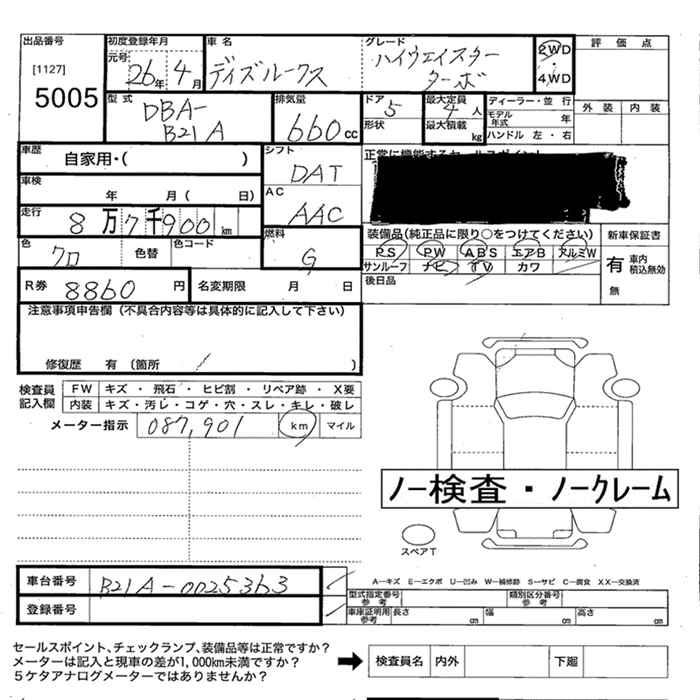 出品番号
[1127]
5005
初度登録年月
元号
26年 4月
車名
ディズルークス
グレード
ハイウェイスター
ターボ
2WD
・
4WD
評価点
外装 内装
型式
DBA-
B21A
排気量
660 cc
ドア
5
形状
最大定員
4人
最大積載
kg
ディーラー・並行
モデル年式 年
ハンドル 左・右
車歴
自家用・( )
シフト
DAT
車検
年 月 ( 日)
AC
AAC
走行
8万7千900 km
燃料
G
色
クロ
色替
色コード
R券 8860 円
名変期限 月 日
装備品(純正品に限り○をつけてください)
PS PW ABS エアB アルミW
サンルーフ ナビ TV カワ
後日品
新車保証書
有 車内積込無効
無
注意事項申告欄(不具合内容等は具体的に記入して下さい)
修復歴 有 (箇所 )
検査員記入欄
FW キズ・飛石・ヒビ割・リペア跡・X要
内装 キズ・汚レ・コゲ・穴・スレ・キレ・破レ
メーター指示 087,901 km マイル
ノー検査・ノークレーム
スペアT
車台番号 B21A-0025363
登録番号
A―キズ E―エクボ U―凹み W―補修跡 S―サビ C―腐食 XX―交換済
型式指定番号 参考
類別区分番号 参考
車庫証明用参考 長さ cm 幅 cm 高さ cm
セールスポイント、チェックランプ、装備品等は正常ですか?
メーターは記入と現車の差が1,000km未満ですか?
5ケタアナログメーターではありませんか?
検査員名 内外 下廻